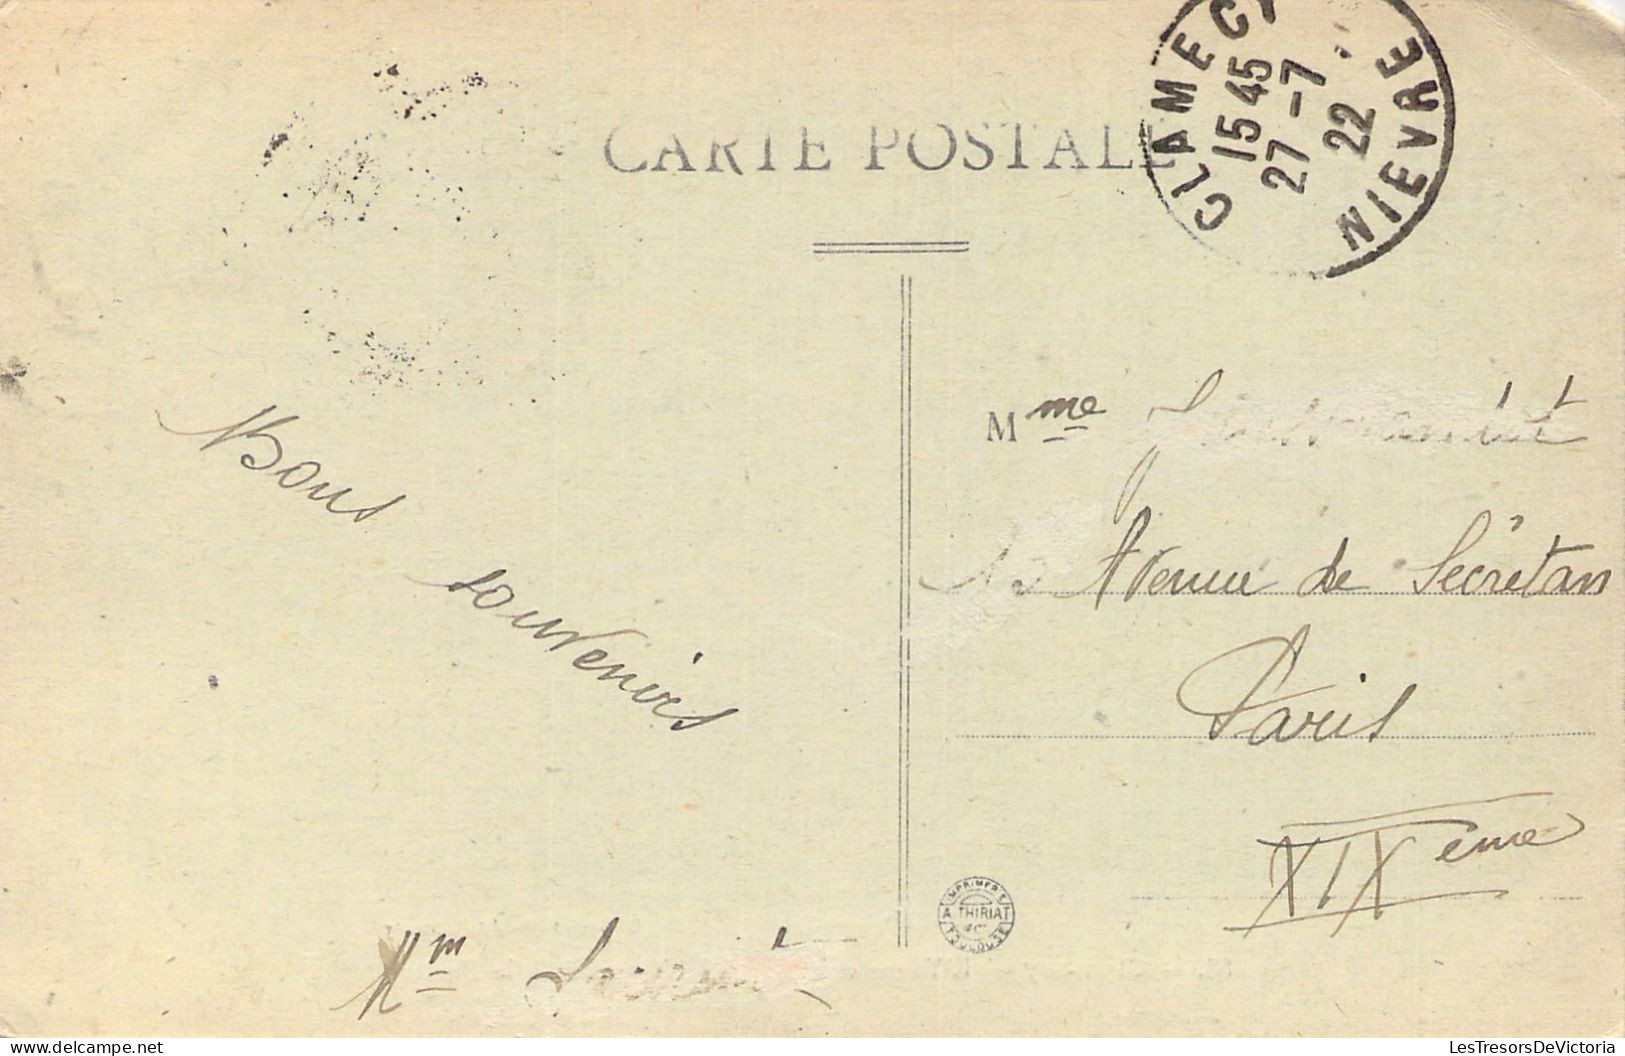 CARTE POSTALE
CLAMECY
15 45
27 -7
22
NIEVRE
Bons
souvenirs
Mme
Avenue de Sécrétan
Paris
XIXeme
IMPRIMERIE
A. THIRIAT
TOULOUSE
Mm
LesTresorsDeVictoria